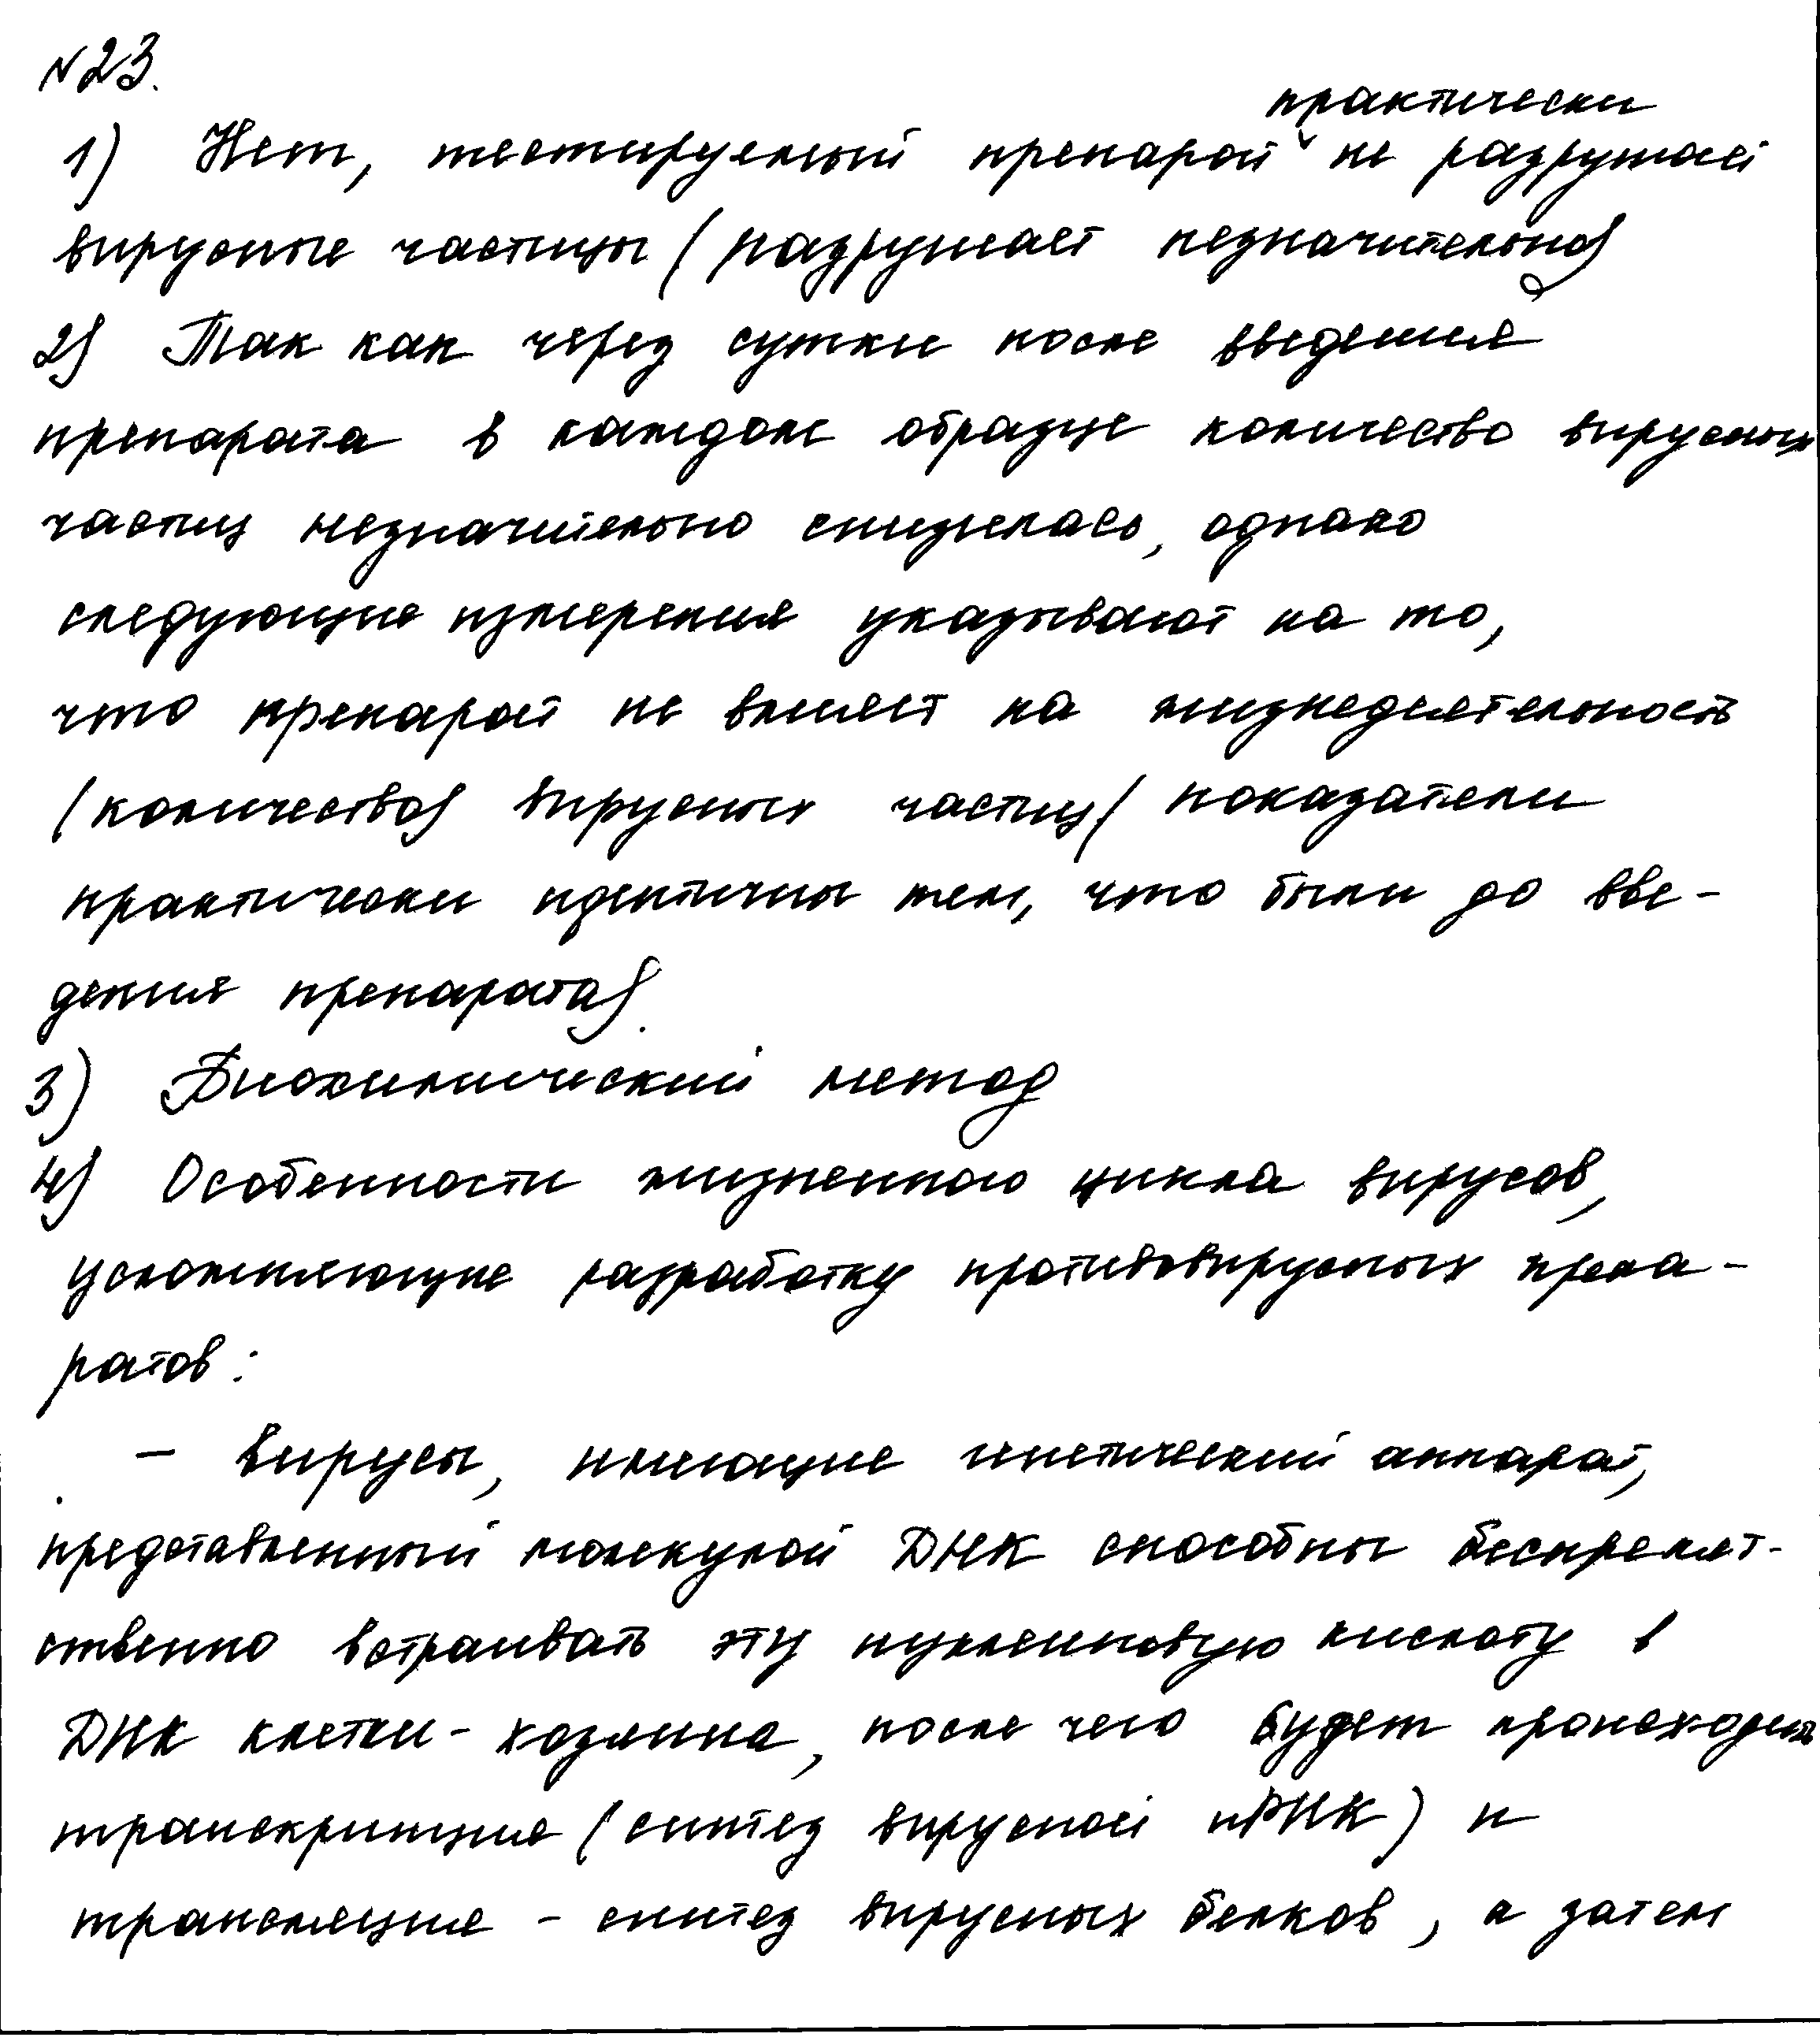 №23.
практически
1) Нет, тестируемый препарат ˅ не разрушает
вирусные частицы (разрушает незначительно)
2) Так как через сутки после введения
препарата в каждом образце количество вирусных
частиц незначительно снизилась, однако
следующие измерения указывают на то,
что препарат не влияет на жизнедеятельность
(количество) вирусных частиц (показатели
практически идентичны тем, что были до вве-
дения препарата).
3) Биохимический метод
4) Особенности жизненного цикла вирусов,
усложняющие разработку противовирусных препа-
ратов:
- Вирусы, имеющие генетический аппарат,
представленный молекулой ДНК способны беспрепят-
ственно встраивать эту нуклеиновую кислоту в
ДНК клетки-хозяина, после чего будет происходить
транскрипция (синтез вирусной иРНК) и
трансляция - синтез вирусных белков, а затем